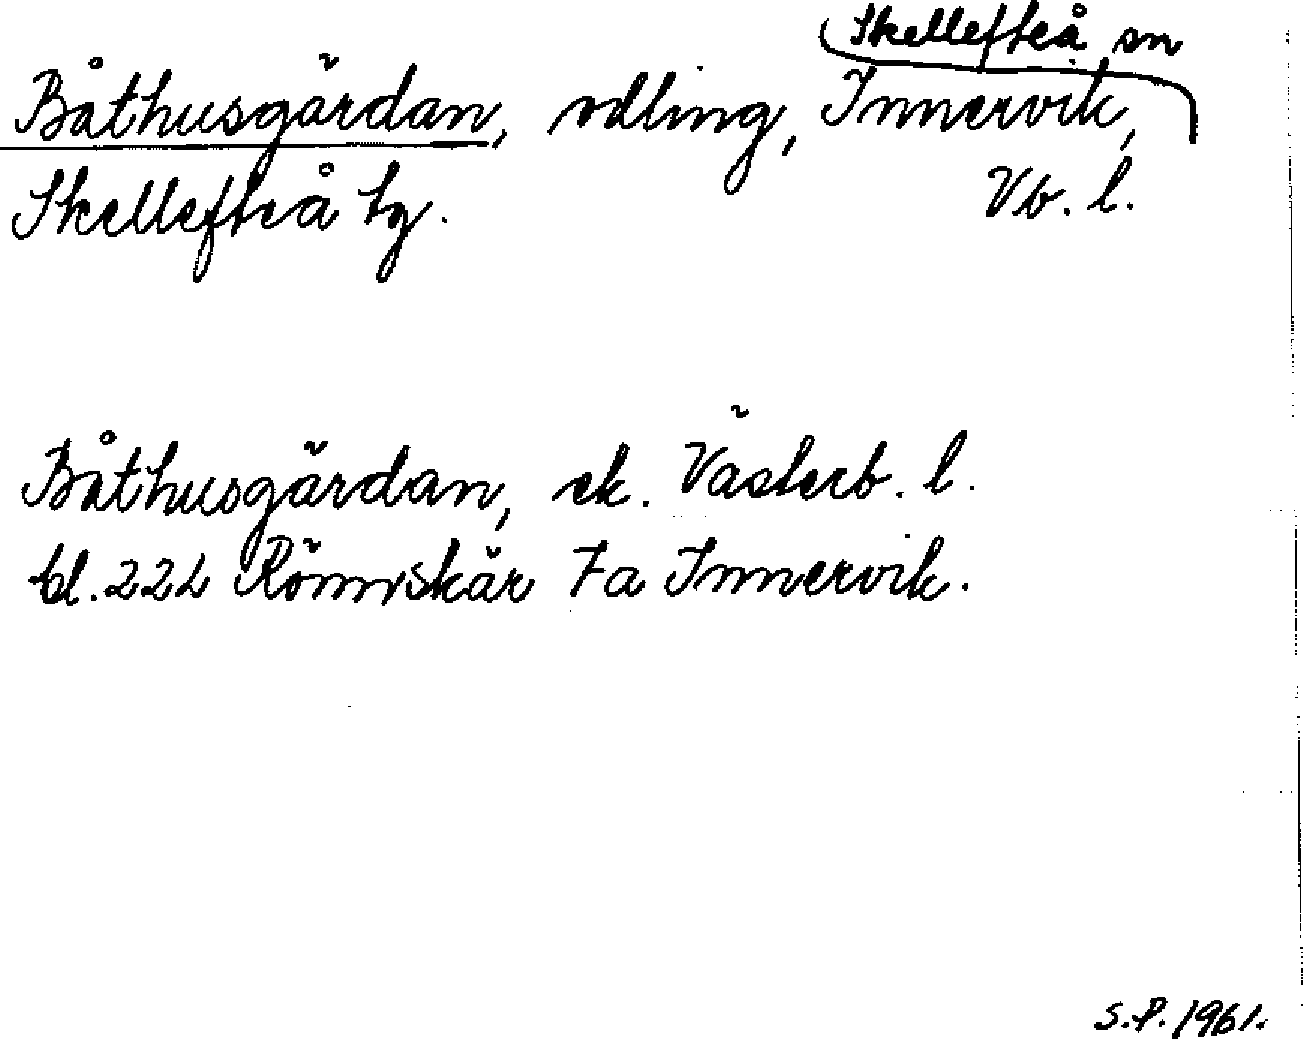 Skellefteå sn
Båthusgärdan, odling, Innervik,
Skellefteå tg. Vb. l.
Båthusgärdan, ek. Västerb. l.
bl. 22L Rönnskär 7a Innervik.
S.P. 1961.